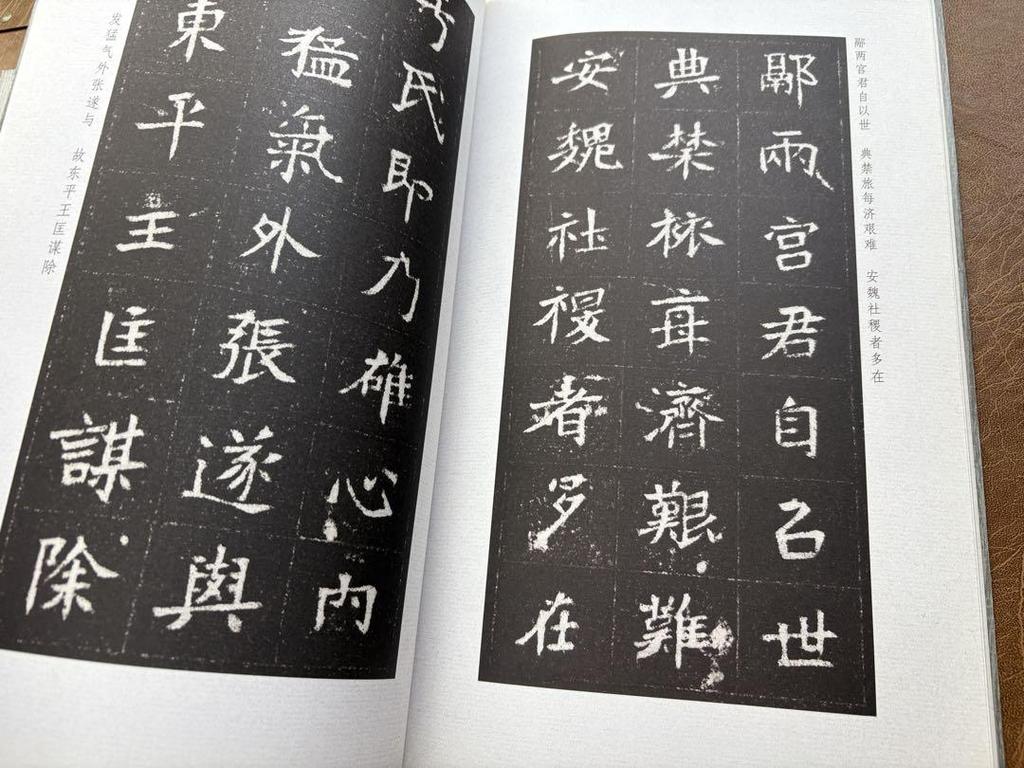 两官君自以世 典禁旅每济艰难 安魏社稷者多在
兩宮君自㠯世
典禁旅每濟艱難
安魏社稷者多在
氏即乃雄心内
猛氣外張遂與
東平王匡謀除
发猛气外张遂与 故东平王匡谋除